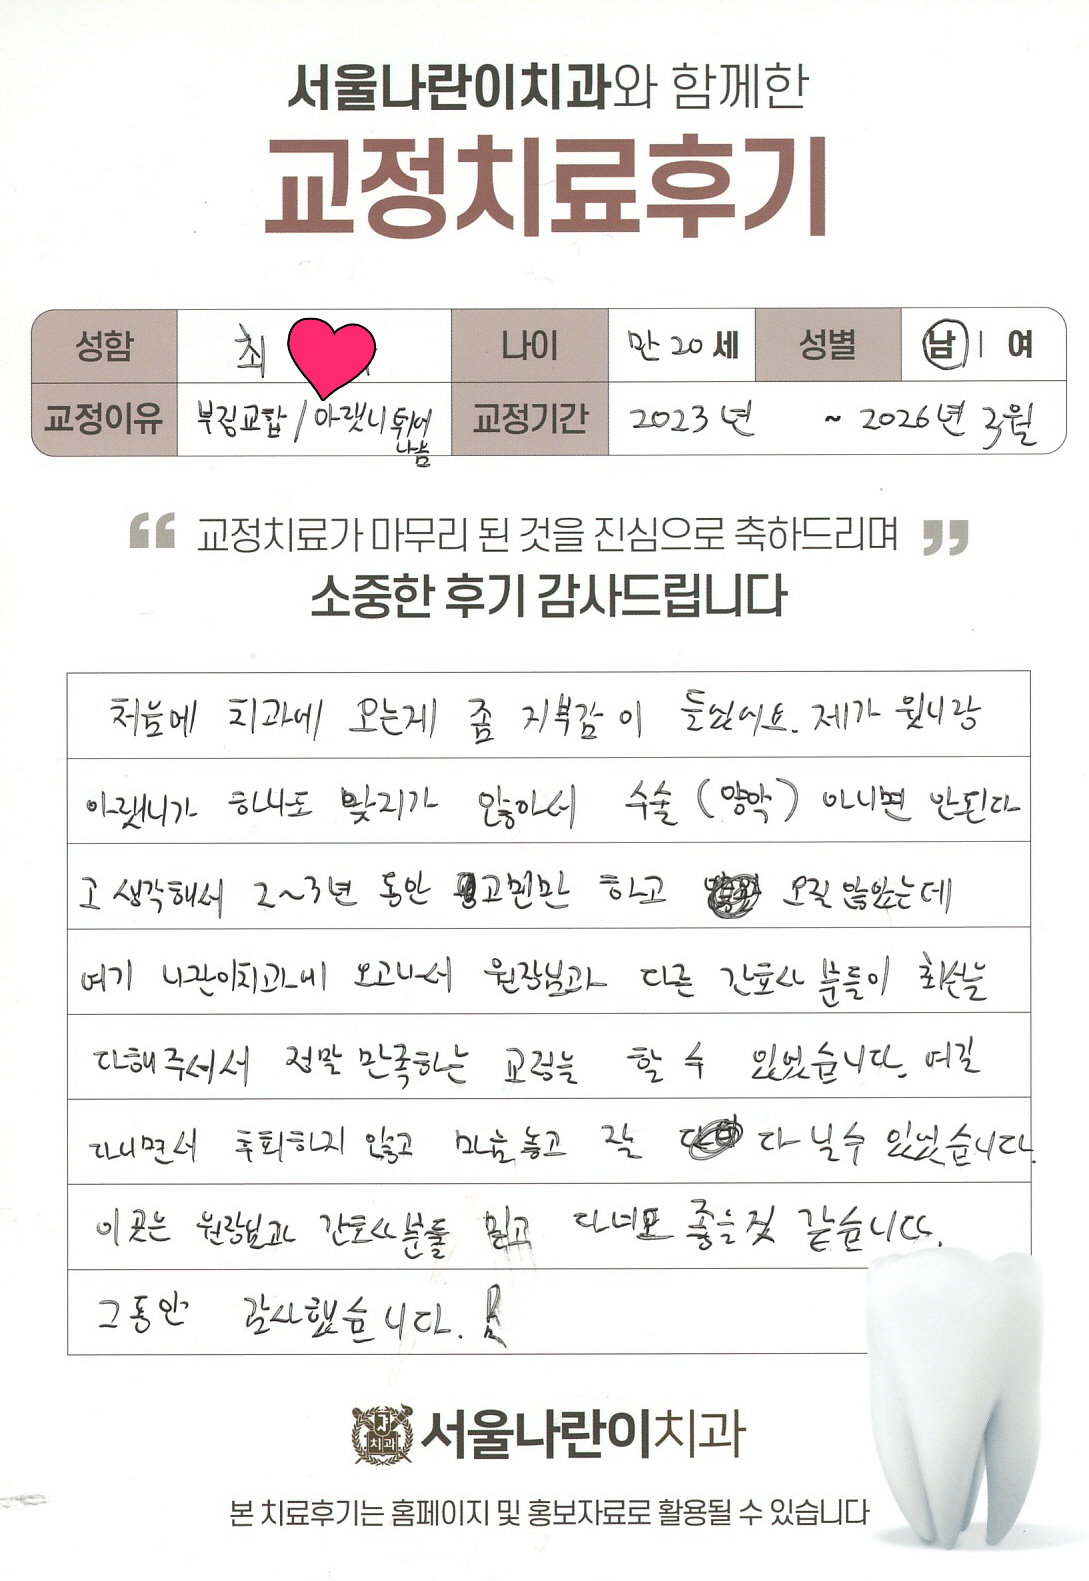 서울나란이치과와 함께한
교정치료후기
성함 최 나이 만 20 세 성별 남 | 여
교정이유 부정교합 / 아랫니 튀어나옴 교정기간 2023년 ~ 2026년 3월
“ 교정치료가 마무리 된 것을 진심으로 축하드리며 ”
소중한 후기 감사드립니다
처음에 치과에 오는게 좀 거부감이 들었어요. 제가 윗니랑
아랫니가 하나도 맞지가 않아서 수술 (양악) 아니면 안된다
고 생각해서 2~3년 동안 고민만 하고 오질 않았는데
여기 나란이치과에 오고나서 원장님과 다른 간호사 분들이 최선을
다해주셔서 정말 만족하는 교정을 할 수 있었습니다. 여길
다니면서 후회하지 않고 마음놓고 잘 다닐수 있었습니다.
이곳은 원장님과 간호사분들 믿고 다녀도 좋을것 같습니다.
그동안 감사했습니다.
치과
서울나란이치과
본 치료후기는 홈페이지 및 홍보자료로 활용될 수 있습니다